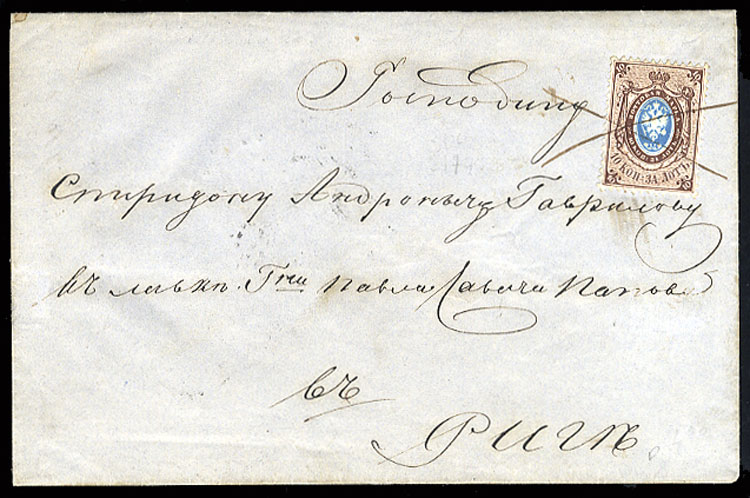 Господину
Спиридону Андроничу Гаврилову
въ лавкѣ Гна Павла Савича Попова
въ
РИГѢ.
10 КОП. ЗА ЛОТЪ